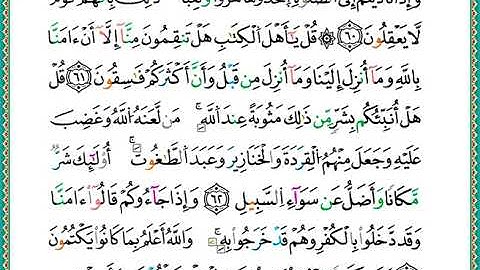 لَّا يَعْقِلُونَ ﴿٦٠﴾ قُلْ يَٰٓأَهْلَ الْكِتَٰبِ هَلْ تَنقِمُونَ مِنَّآ إِلَّآ أَنْ ءَامَنَّا
بِاللَّهِ وَمَآ أُنزِلَ إِلَيْنَا وَمَآ أُنزِلَ مِن قَبْلُ وَأَنَّ أَكْثَرَكُمْ فَٰسِقُونَ ﴿٦١﴾ قُلْ
هَلْ أُنَبِّئُكُم بِشَرٍّ مِّن ذَٰلِكَ مَثُوبَةً عِندَ اللَّهِ ۚ مَن لَّعَنَهُ اللَّهُ وَغَضِبَ
عَلَيْهِ وَجَعَلَ مِنْهُمُ الْقِرَدَةَ وَالْخَنَازِيرَ وَعَبَدَ الطَّٰغُوتَ ۚ أُو۟لَٰٓئِكَ شَرٌّ
مَّكَانًا وَأَضَلُّ عَن سَوَآءِ السَّبِيلِ ﴿٦٢﴾ وَإِذَا جَآءُوكُمْ قَالُوٓا۟ ءَامَنَّا
وَقَد دَّخَلُوا۟ بِالْكُفْرِ وَهُمْ قَدْ خَرَجُوا۟ بِهِ ۚ وَاللَّهُ أَعْلَمُ بِمَا كَانُوا۟ يَكْتُمُونَ